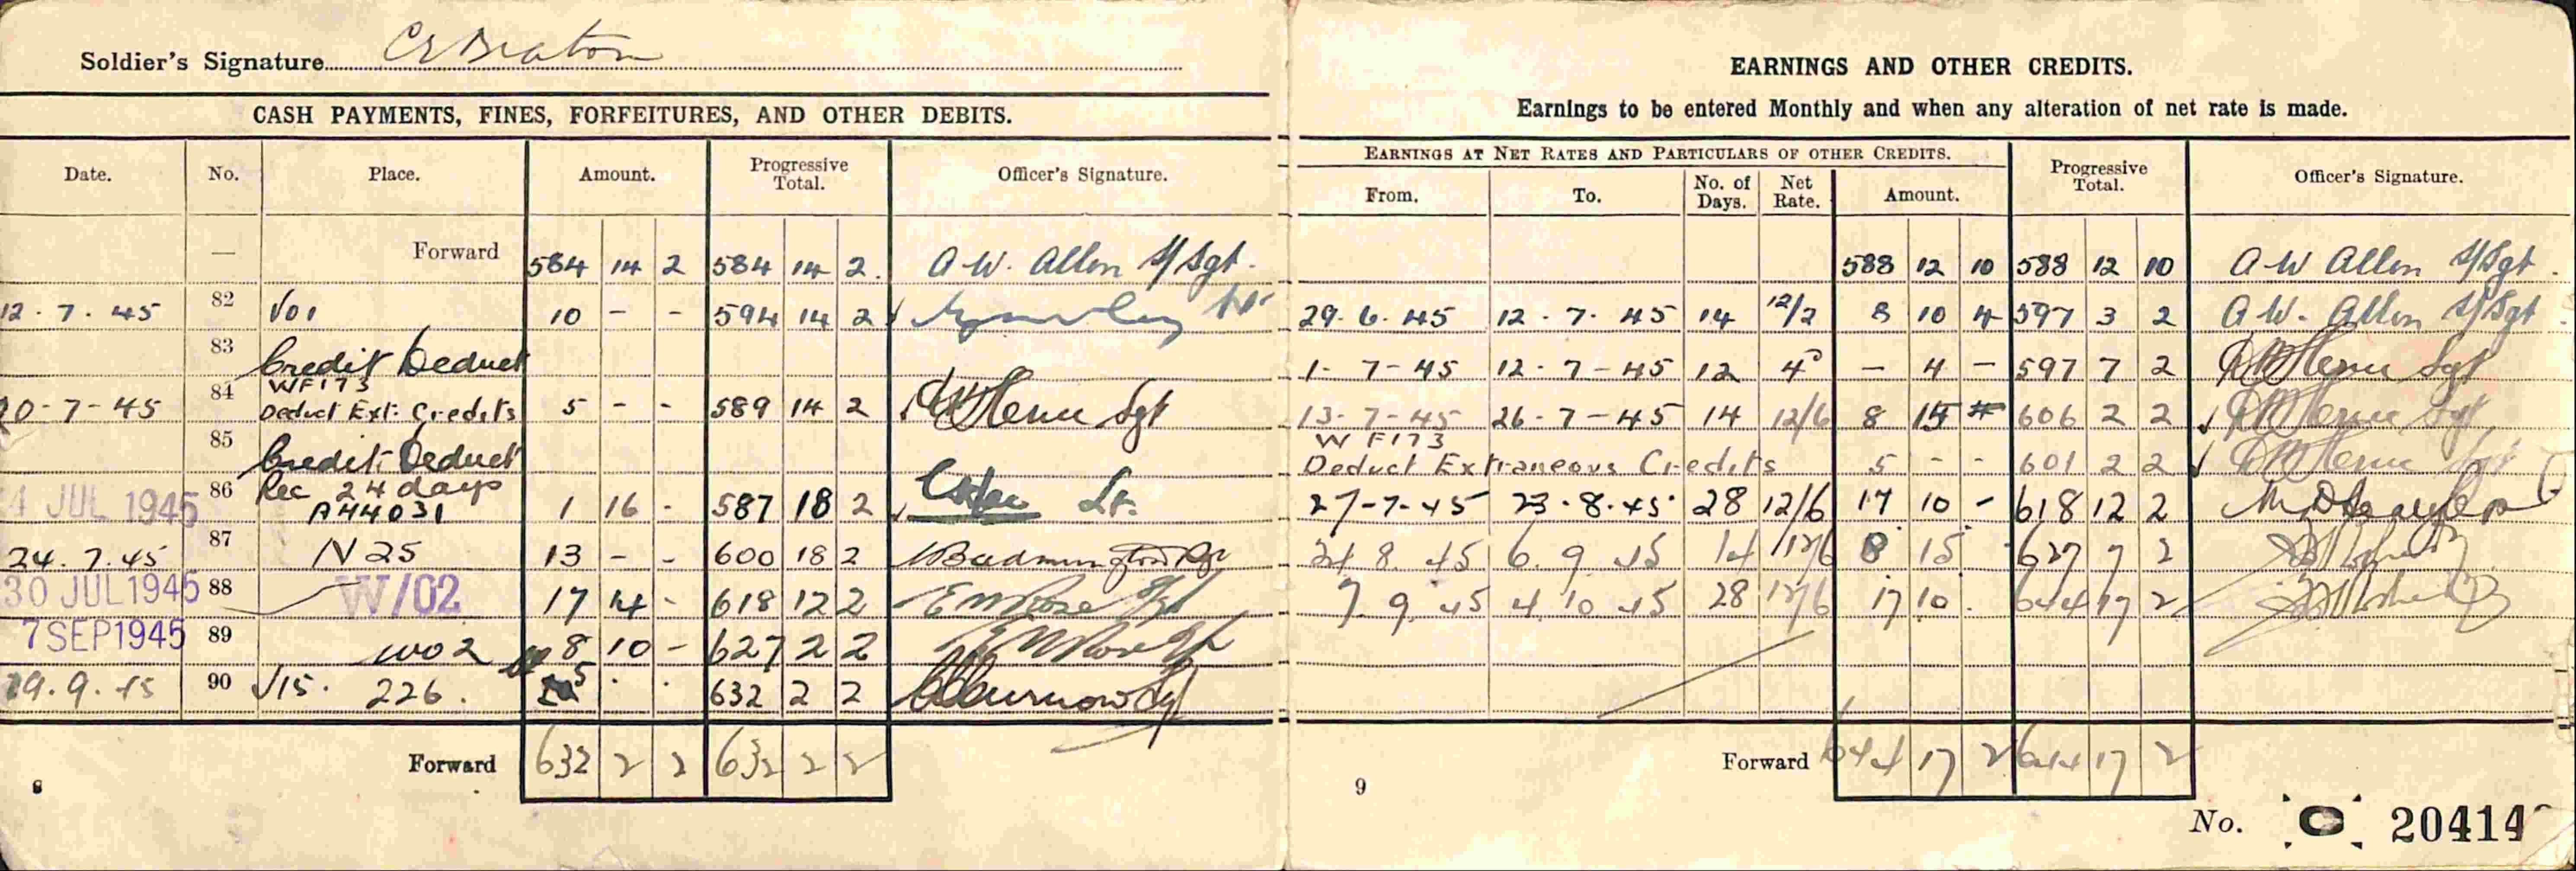 Soldier's Signature
CASH PAYMENTS, FINES, FORFEITURES, AND OTHER DEBITS.
Date. No. Place. Amount. Progressive Total. Officer's Signature.
— Forward 584 14 2 584 14 2. A.W. Allen S/Sgt.
12.7.45 82 V01 10 - - 594 14 2
83 Credit Deduct
WF173
20-7-45 84 Deduct Ext: Credits 5 - - 589 14 2 Sgt
85 Credit: Deduct
Rec 24 days
4 JUL 1945 86 A44031 1 16 - 587 18 2 Lt.
24.7.45 87 N25 13 - - 600 18 2
30 JUL 1945 88 W/02 17 14 - 618 12 2
7 SEP 1945 89 WO2 8 10 - 627 2 2
19.9.45 90 V15. 226. 5 . . 632 2 2
Forward 632 2 2 632 2 2
EARNINGS AND OTHER CREDITS.
Earnings to be entered Monthly and when any alteration of net rate is made.
EARNINGS AT NET RATES AND PARTICULARS OF OTHER CREDITS.
From. To. No. of Days. Net Rate. Amount. Progressive Total. Officer's Signature.
588 12 10 588 12 10 A W Allen S/Sgt.
29.6.45 12.7.45 14 12/2 8 10 4 597 3 2 A.W. Allen S/Sgt
1-7-45 12-7-45 12 4 - 4 - 597 7 2 Sgt
13-7-45 26-7-45 14 12/6 8 15 606 2 2
W F173
Deduct Extraneous Credits 5 - - 601 2 2
27-7-45 23.8.45 28 12/6 17 10 - 618 12 2
24 8 45 6. 9 45 14 12/6 8 15 . 627 7 2
7 9 45 4 10 45 28 12/6 17 10 . 644 17 2
Forward 644 17 2 644 17 2
8
9
No. 20414